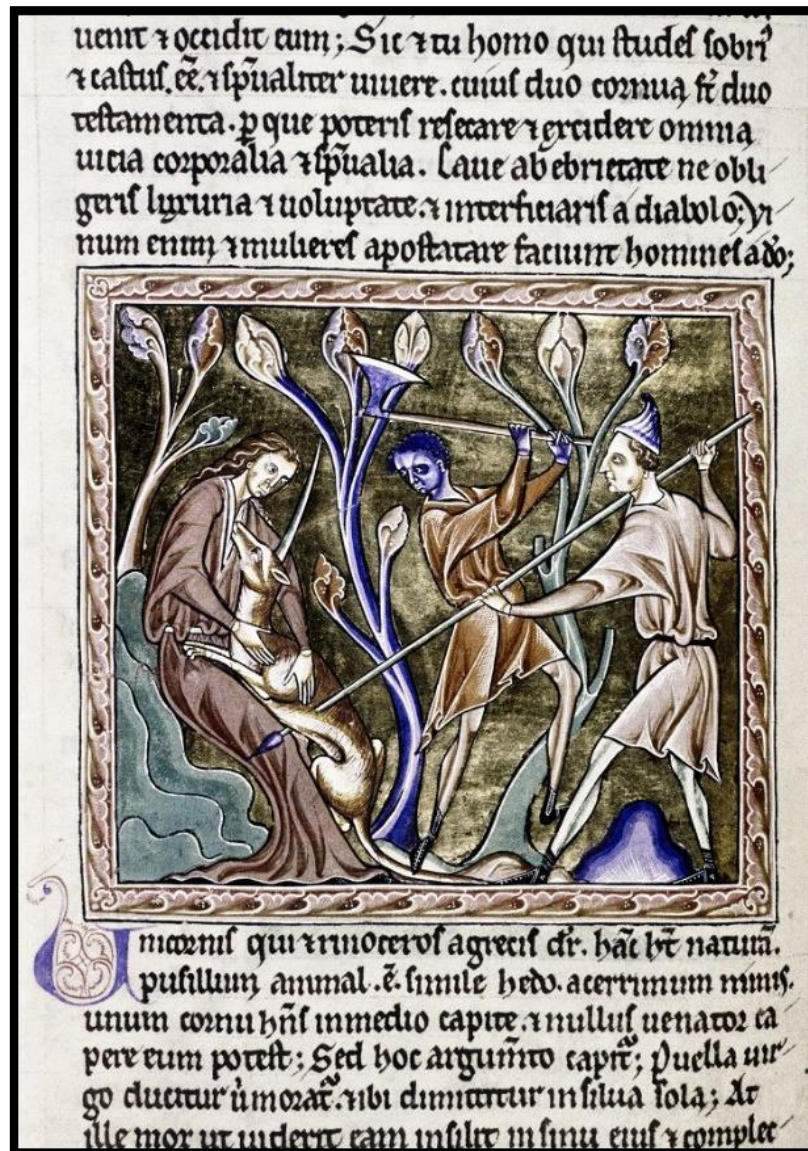 uenit ⁊ occidit eum; Sic ⁊ tu homo qui studes sobriꝰ
⁊ castus. eē. ⁊ sp̄ualiter uiuere. cuius duo cornua s̄t duo
testamenta. ꝑ que poteris resecare ⁊ excidere omnia
uicia corporalia ⁊ sp̄ualia. Caue ab ebrietate ne obli
geris luxuria ⁊ uoluptate. ⁊ interficiaris a diabolo; Vi
num enim ⁊ mulieres apostatare faciunt homines a do;
Unicornis qui ⁊ rinoceros a grecis dr̄. hāc ht̄ naturā.
pusillum animal. ē. simile hedo. acerrimum nimis.
unum cornu hn̄s in medio capite. ⁊ nullus uenator ca
pere eum potest; Sed hoc argumīto capit̄; Puella uir
go ducitur u᷑ morat̄. ⁊ ibi dimittitur in silua sola; At
ille mox ut uiderit eam insilit in sinu eius ⁊ complec